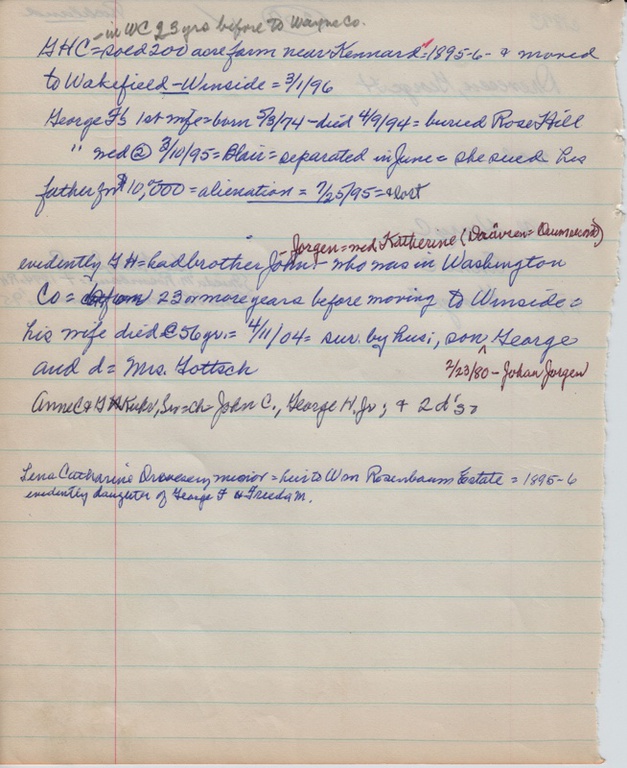 -in WC 23 yrs before to Wayne Co.
GHC = sold 200 acre farm near Kennard = 1895-6- & moved
to Wakefield - Winside = 3/1/96
George F's 1st wife = born 5/3/74 - died 4/9/94 = buried Rose Hill
" wed @ 3/10/95 = Blair = separated in June = she sued his
father for $10,000 = alienation = 7/25/95 =
- Jorgen = wed Katherine (
evidently GH = had brother John - who was in Washington
Co = 23 or more years before moving to Winside =
his wife died @ 56 yr. = 4/11/04 = sur. by husi, son George
and d = Mrs. Gottsch
2/23/80 - Johan Jorgen
Anne C & G H Kuhr, Sr = ch = John C., George H. Jr; & 2 d's =
Lena Catharine minor = heir to Wm Rosenbaum Estate = 1895-6
evidently daughter of George F & Freeda M.